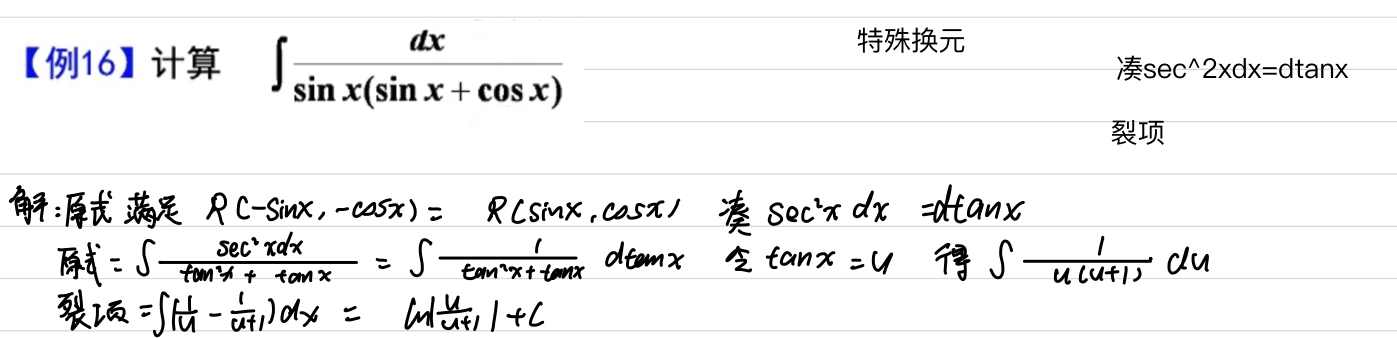 【例16】计算 ∫ dx / sin x(sin x + cos x)
特殊换元
凑sec^2xdx=dtanx
裂项
解:原式 满足 R(-sinx, -cosx) = R(sinx, cosx) 凑 sec²x dx = dtanx
原式 = ∫ sec²xdx / tan²x + tanx = ∫ 1 / tan²x + tanx dtanx 令 tanx = u 得 ∫ 1 / u(u+1) du
裂项 = ∫(1/u - 1/u+1)dx = ln|u/u+1| + C